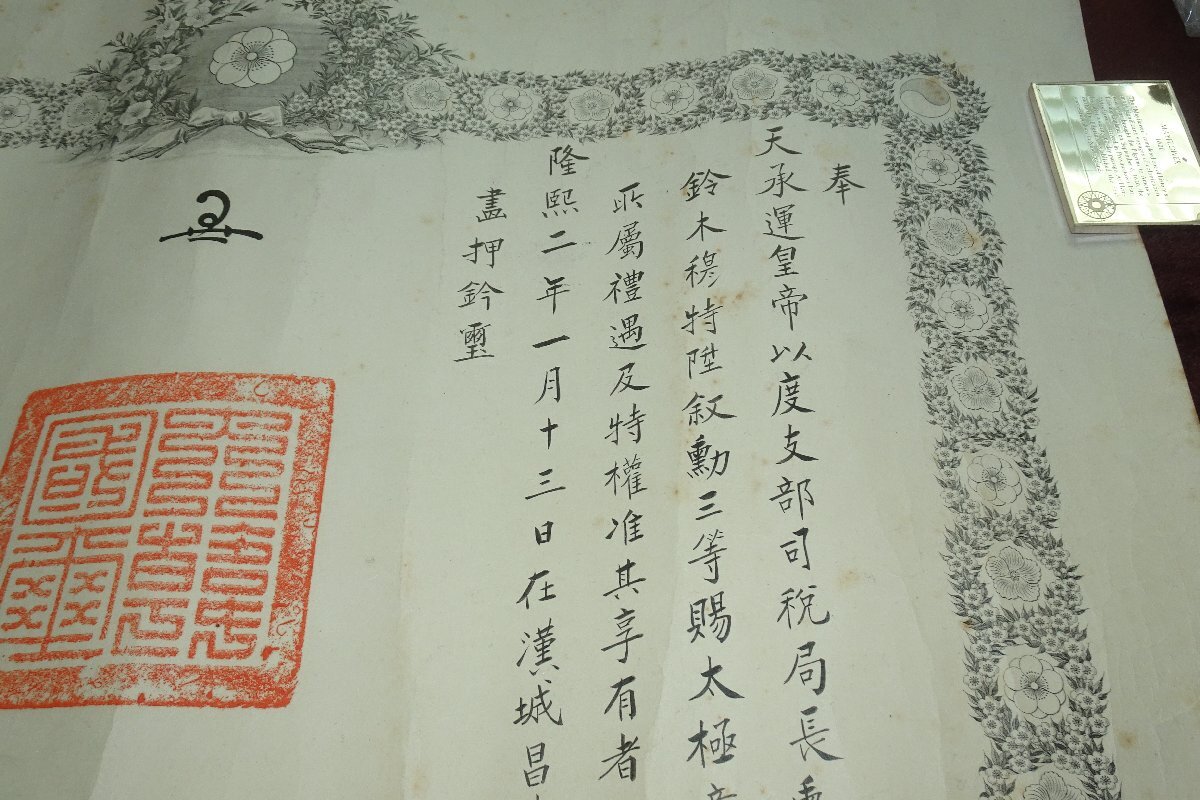 奉
天承運皇帝以度支部司稅局長
鈴木穆特陞叙勳三等賜太極章
所屬禮遇及特權准其享有者
隆熙二年一月十三日在漢城昌
畵押鈐璽